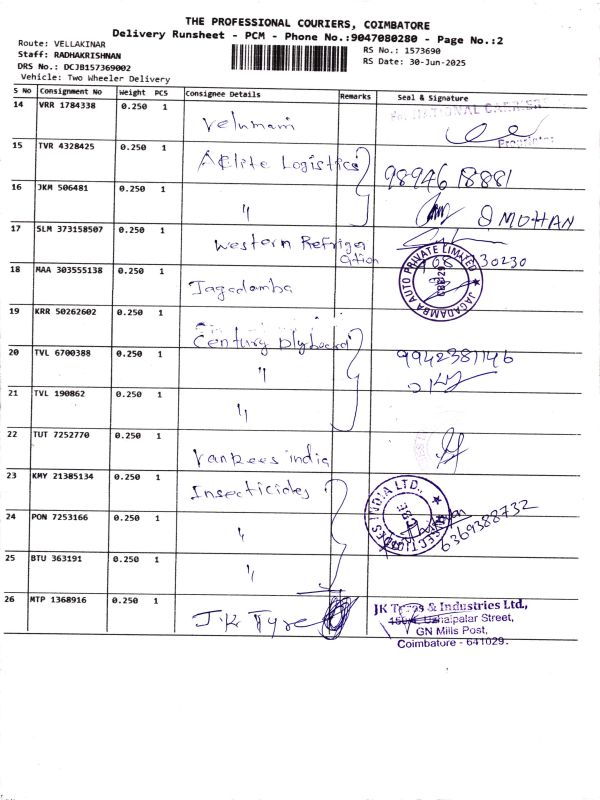 THE PROFESSIONAL COURIERS, COIMBATORE
Delivery Runsheet - PCM - Phone No.:9047080280 - Page No.:2
Route: VELLAKINAR
Staff: RADHAKRISHNAN
DRS No.: DCJB157369002
Vehicle: Two Wheeler Delivery
RS No.: 1573690
RS Date: 30-Jun-2025
S No Consignment No Weight PCS Consignee Details Remarks Seal & Signature
14 VRR 1784338 0.250 1 Velumani
NATIONAL CARRIERS
Proprietor
15 TVR 4328425 0.250 1 AElite Logistics 9894618881
16 JKM 506481 0.250 1 " MOHAN
17 SLM 373158507 0.250 1 Western Refriger
ation 30230
18 MAA 303555138 0.250 1 Jagadamba
JAGADAMBA AUTO PRIVATE LIMITED
19 KRR 50262602 0.250 1 Century plyboard
20 TVL 6700388 0.250 1 " 9942381146
21 TVL 190862 0.250 1 "
22 TUT 7252770 0.250 1 Vankees india
23 KMY 21385134 0.250 1 Insecticides
INSECTICIDES INDIA LTD.,
CBE
24 PON 7253166 0.250 1 " 6369388732
25 BTU 363191 0.250 1 "
26 MTP 1368916 0.250 1 J.K Tyre
JK Tyres & Industries Ltd.,
Street,
GN Mills Post,
Coimbatore - 641029.